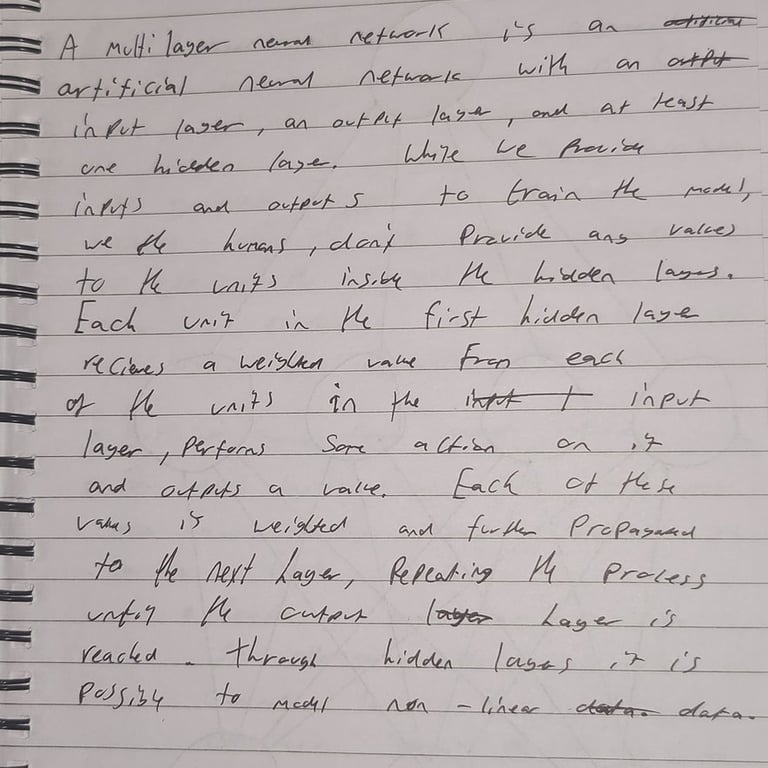 A multilayer neural network is an artificial
artificial neural network with an output
input layer, an output layer, and at least
one hidden layer. While we provide
inputs and outputs to train the model,
we the humans, don't provide any values
to the units inside the hidden layers.
Each unit in the first hidden layer
recieves a weighted value from each
of the units in the input t input
layer, performs some action on it
and outputs a value. Each of these
values is weighted and further propagated
to the next layer, repeating the process
until the output layer layer is
reached. through hidden layers it is
possible to model non-linear data. data.